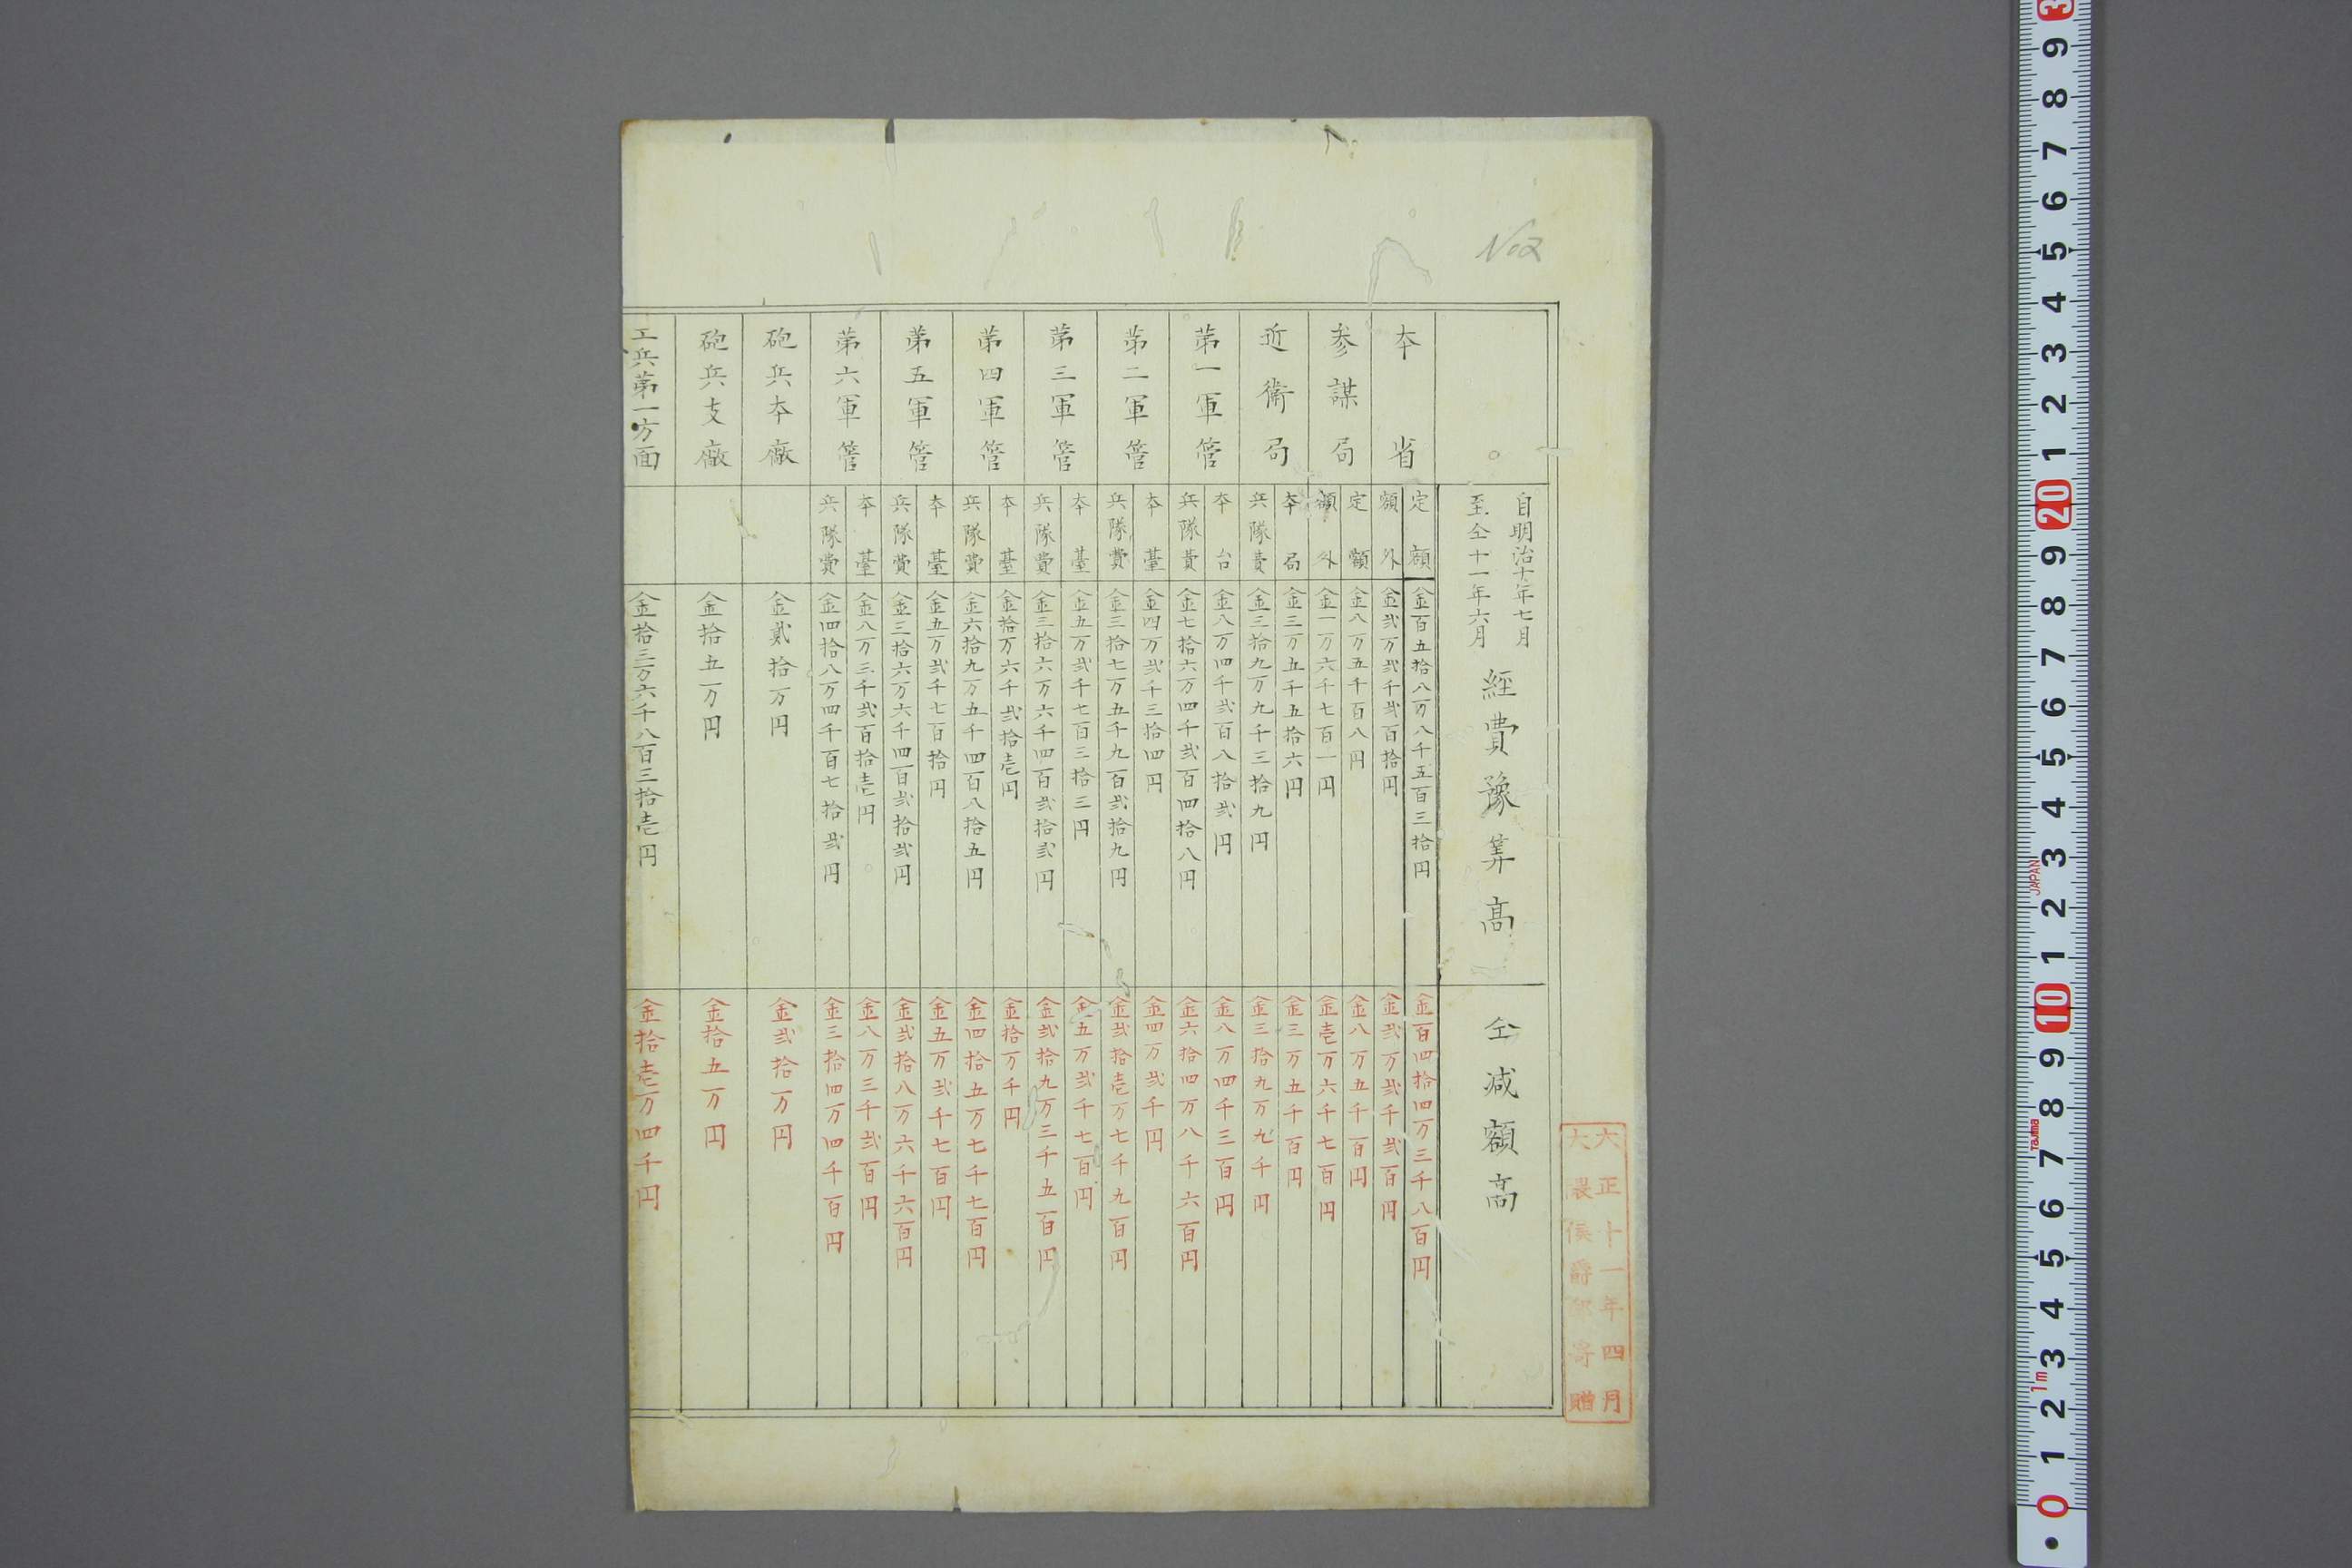 No2
自明治十年七月
至仝十一年六月
經費豫算高
仝減額高
本省
定額
金百五拾八万八千五百三拾円
金百四拾四万三千八百円
額外
金弐万弐千弐百拾円
金弐万弐千弐百円
参謀局
定額
金八万五千百八円
金八万五千百円
額外
金一万六千七百一円
金壱万六千七百円
近衞局
本局
金三万五千五拾六円
金三万五千百円
兵隊費
金三拾九万九千三拾九円
金三拾九万九千円
第一軍管
本台
金八万四千弐百八拾弐円
金八万四千三百円
兵隊費
金七拾六万四千弐百四拾八円
金六拾四万八千六百円
第二軍管
本臺
金四万弐千三拾四円
金四万弐千円
兵隊費
金三拾七万五千九百弐拾九円
金弐拾壱万七千九百円
第三軍管
本臺
金五万弐千七百三拾三円
金五万弐千七百円
兵隊費
金三拾六万六千四百弐拾弐円
金弐拾九万三千五百円
第四軍管
本臺
金拾万六千弐拾壱円
金拾万千円
兵隊費
金六拾九万五千四百八拾五円
金四拾五万七千七百円
第五軍管
本臺
金五万弐千七百拾円
金五万弐千七百円
兵隊費
金三拾六万六千四百弐拾弐円
金弐拾八万六千六百円
第六軍管
本臺
金八万三千弐百拾壱円
金八万三千弐百円
兵隊費
金四拾八万四千百七拾弐円
金三拾四万四千百円
砲兵本廠
金貳拾万円
金弐拾万円
砲兵支廠
金拾五万円
金拾五万円
工兵第一方面
金拾三万六千八百三拾壱円
金拾壱万四千円
大正十一年四月
大隈侯爵邸寄贈
3 9 8 7 6 5 4 3 2 1 20 9 8 7 6 5 4 3 2 1 10 9 8 7 6 5 4 3 2 1 0
JAPAN
Tajima
1m